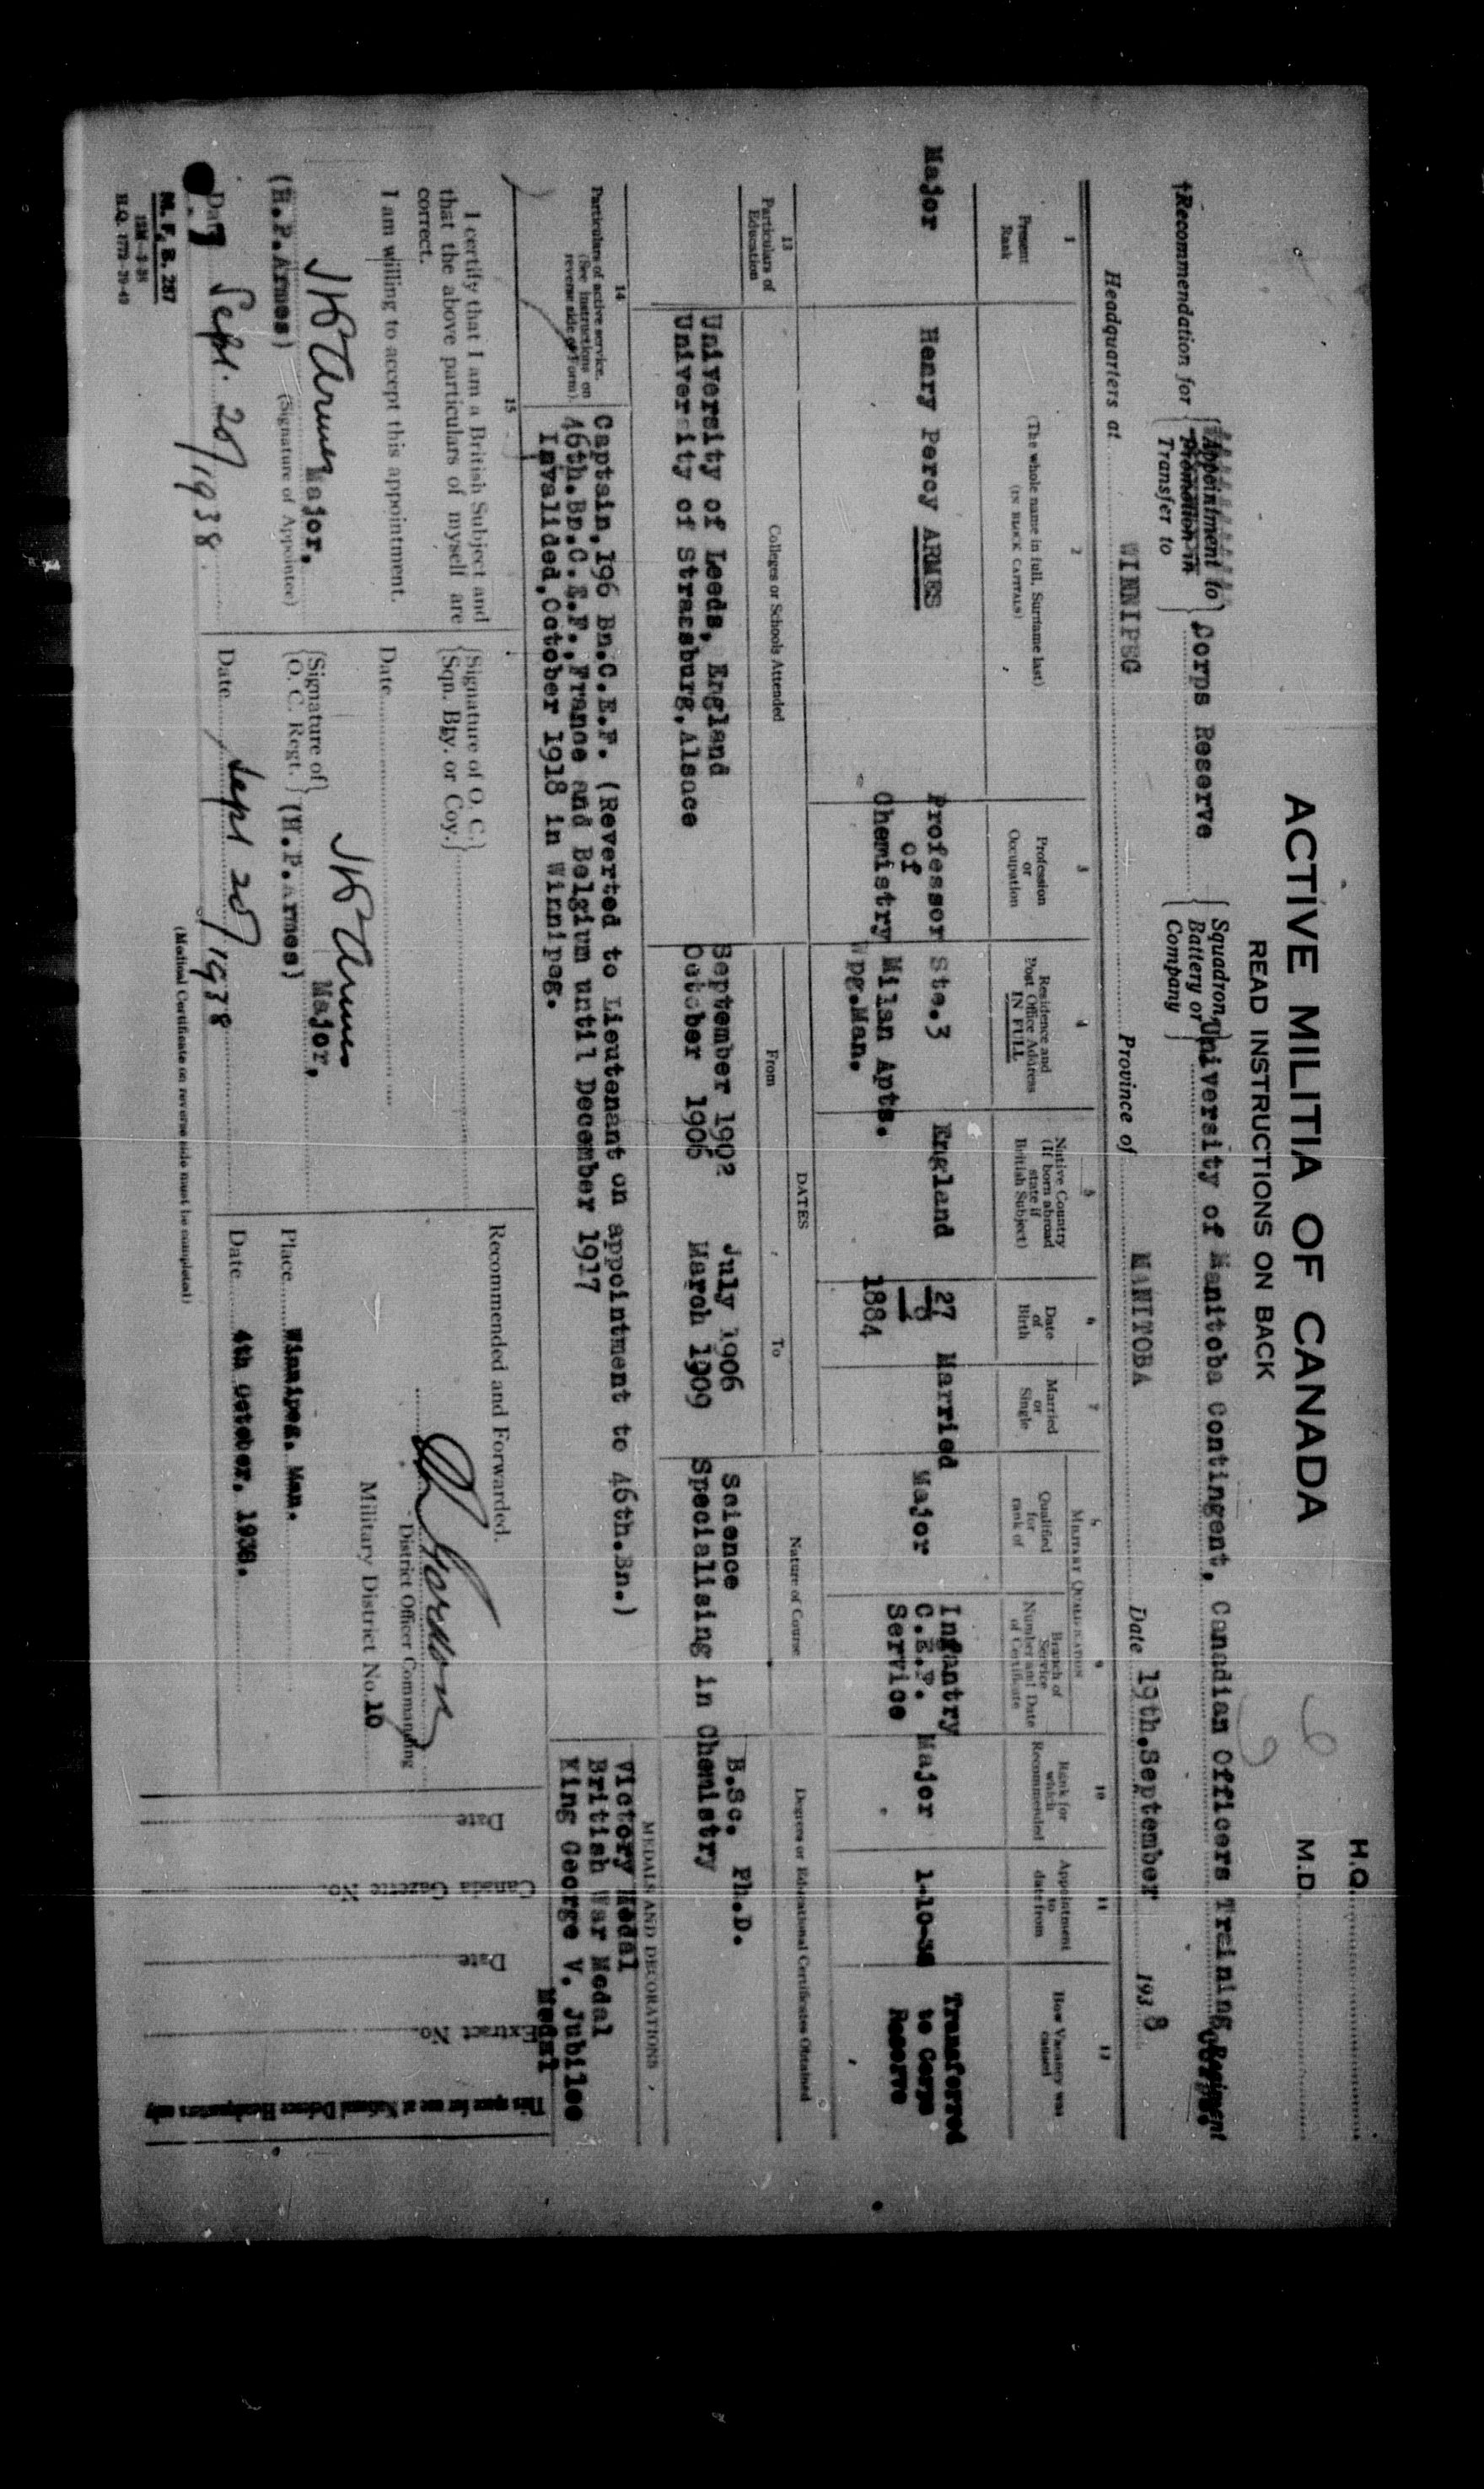 H.Q.
M.D.
ACTIVE MILITIA OF CANADA
READ INSTRUCTIONS ON BACK
†Recommendation for
Appointment to
Promotion in
Transfer to
Corps Reserve
Squadron,
Battery or
Company
University of Manitoba Contingent, Canadian Officers Training Corps.
Regiment
Headquarters at WINNIPEG Province of MANITOBA Date 19th.September 1938
1
Present
Rank
2
(The whole name in full. Surname last)
(IN BLOCK CAPITALS)
3
Profession
or
Occupation
4
Residence and
Post Office Address
IN FULL
5
Native Country
(If born abroad
state if
British Subject)
6
Date
of
Birth
7
Married
or
Single
MILITARY QUALIFICATION
Qualified
for
rank of
9
Branch of
Service
Number and Date
of Certificate
10
Rank for
which
Recommended
11
Appointment
to
date from
12
How Vacancy was
caused
Major
Henry Percy ARMES
Professor
of
Chemistry
Ste.3
Milan Apts.
Wpg.Man.
England
27
1884
Married
Major
Infantry
C.E.F.
Service
Major
1-10-38
Transferred
to Corps
Reserve
13
Particulars of
Education
Colleges or Schools Attended
DATES
From
To
Nature of Course
Degrees or Educational Certificates Obtained
University of Leeds, England September 1902 July 1906 Science B.Sc. Ph.D.
University of Strassburg, Alsace October 1906 March 1909 Specialising in Chemistry
14
Particulars of active service.
(See instructions on
reverse side of Form).
Captain,196 Bn.C.E.F. (Reverted to Lieutenant on appointment to 46th.Bn.)
46th.Bn.C.E.F.,France and Belgium until December 1917
Invalided,October 1918 in Winnipeg.
MEDALS AND DECORATIONS
Victory Medal
British War Medal
King George V. Jubilee
Medal
15
I certify that I am a British Subject and
that the above particulars of myself are
correct.
I am willing to accept this appointment.
H P Armes
Major,
(H.P.Armes)
(Signature of Appointee)
Date Sept. 20/1938.
Signature of O. C.
Sqn. Bty. or Coy.
Date
H P Armes
Signature of
O. C. Regt.
(H.P.Armes)
Major,
Date Sept 20/1938
Recommended and Forwarded.
District Officer Commanding
Military District No. 10
Place Winnipeg. Man.
Date 4th October, 1938.
Date
Canada Gazette No.
Date
Extract No.
This space for use at National Defence Headquarters only
M. F. B. 287
H.Q. 1772-39-49
(Medical Certificate on reverse side must be completed)